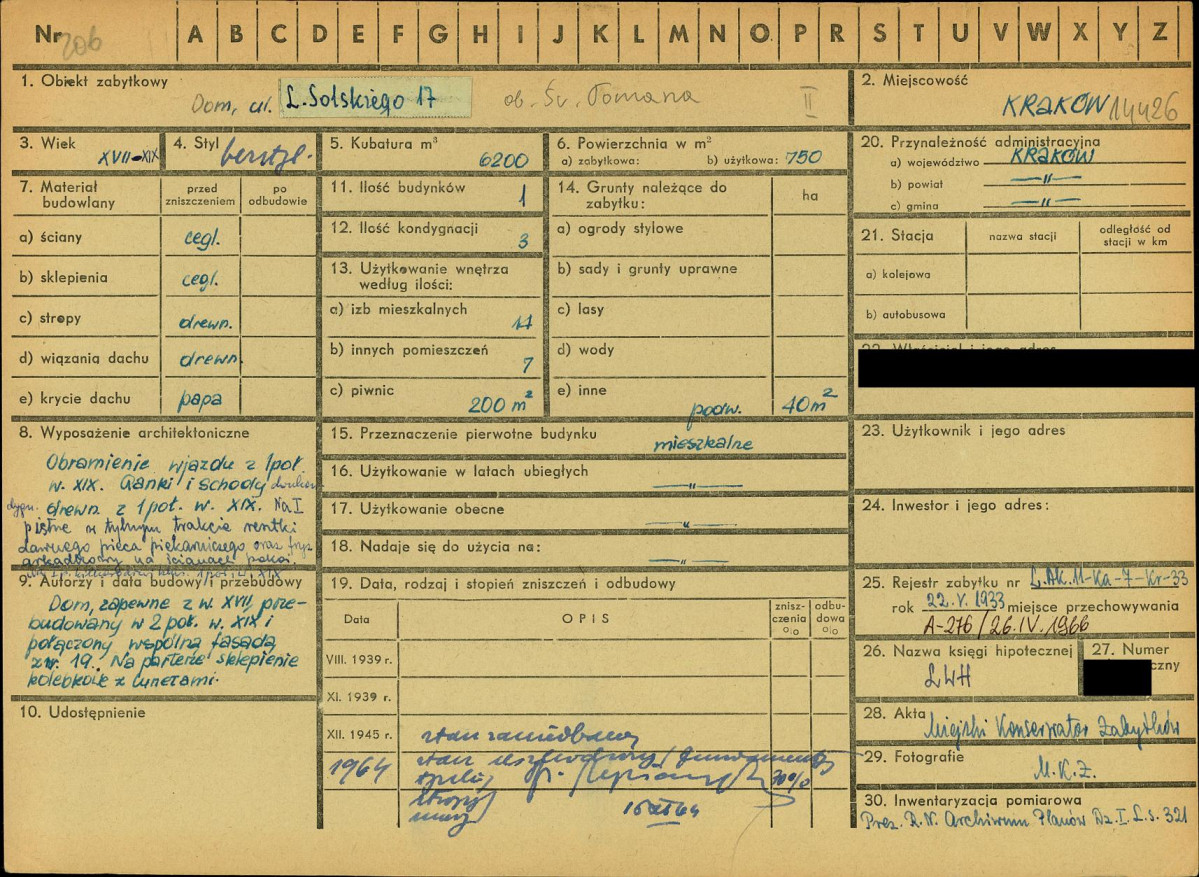 Nr 206 A B C D E F G H I J K L M N O P R S T U V W X Y Z
1. Obiekt zabytkowy
Dom, ul. L. Solskiego 17 ob. Św. Tomasza II
2. Miejscowość
KRAKÓW 14426
3. Wiek
XVII-XIX
4. Styl
bezstyl.
5. Kubatura m³
6200
6. Powierzchnia w m²
a) zabytkowa: b) użytkowa: 750
20. Przynależność administracyjna
a) województwo KRAKÓW
b) powiat —"—
c) gmina —"—
7. Materiał budowlany
przed zniszczeniem
po odbudowie
a) ściany cegl.
b) sklepienia cegl.
c) stropy drewn.
d) wiązania dachu drewn.
e) krycie dachu papa
11. Ilość budynków
1
12. Ilość kondygnacji
3
13. Użytkowanie wnętrza
według ilości:
a) izb mieszkalnych
11
b) innych pomieszczeń
7
c) piwnic
200 m²
14. Grunty należące do
zabytku:
ha
a) ogrody stylowe
b) sady i grunty uprawne
c) lasy
d) wody
e) inne
podw. 40 m²
21. Stacja
nazwa stacji
odległość od
stacji w km
a) kolejowa
b) autobusowa
8. Wyposażenie architektoniczne
Obramienie wjazdu z 1 poł.
w. XIX. Ganki i schody
drewn. z 1 poł. w. XIX. Na I
piętrze w tylnym trakcie resztki
dawnego pieca piekarniczego oraz fryz
arkadkowy na ścianach pokoi
15. Przeznaczenie pierwotne budynku
mieszkalne
16. Użytkowanie w latach ubiegłych
—"—
17. Użytkowanie obecne
—"—
18. Nadaje się do użycia na:
—"—
23. Użytkownik i jego adres
24. Inwestor i jego adres:
9. Autorzy i data budowy i przebudowy
Dom, zapewne z w. XVII, prze-
budowany w 2 poł. w. XIX i
połączony wspólną fasadą
z nr. 19. Na parterze sklepienie
kolebkowe z lunetami.
10. Udostępnienie
19. Data, rodzaj i stopień zniszczeń i odbudowy
Data
OPIS
znisz-
czenia
o/o
odbu-
dowa
o/o
VIII. 1939 r.
XI. 1939 r.
XII. 1945 r. stan zaniedbany
1964 stan uszkodzony / fundamenty
30%
stropy
mury 16 XI 64
25. Rejestr zabytku nr L.AK.11-Ka-7-Kr-33
rok 22.V.1933 miejsce przechowywania
A-276/26.IV.1966
26. Nazwa księgi hipotecznej
LWH
27. Numer
czny
28. Akta
Miejski Konserwator Zabytków
29. Fotografie
M.K.Z.
30. Inwentaryzacja pomiarowa
Prez. R.N. Archiwum Planów Dz. I. L.s. 321